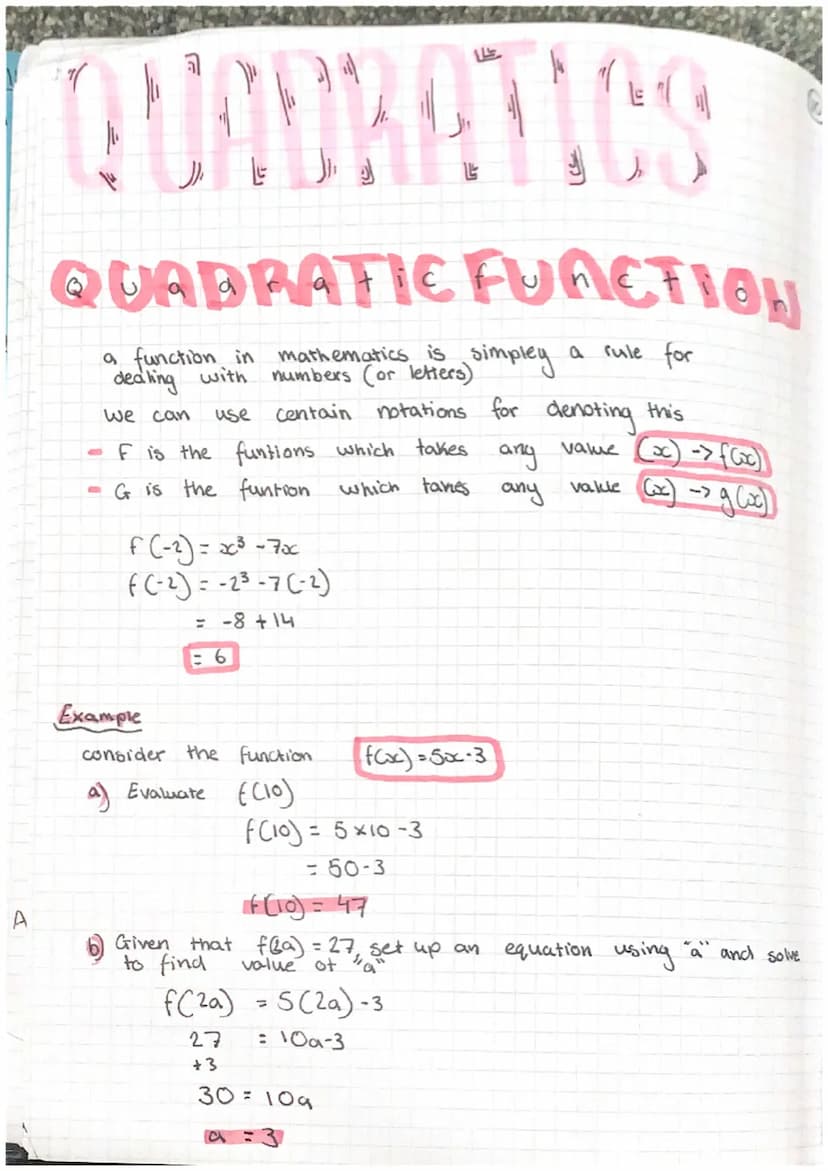 QUADRATICS
QUADRATIC FUNCTION
a function in mathematics is simpley a rule for
dealing with numbers (or letters)
we can use centain notations for denoting this
- F is the funtions which takes any value (x) -> f(x)
- G is the funtion which takes any value (x) -> g(x)
f(-2) = x³ - 7x
f(-2) = -2³ - 7(-2)
= -8 + 14
= 6
Example
consider the function f(x) = 5x - 3
a) Evaluate f(10)
f(10) = 5 × 10 - 3
= 50 - 3
f(10) = 47
A
b) Given that f(2a) = 27, set up an equation using "a" and solve
to find value of "a"
f(2a) = 5(2a) - 3
27 = 10a - 3
+3
30 = 10a
a = 3